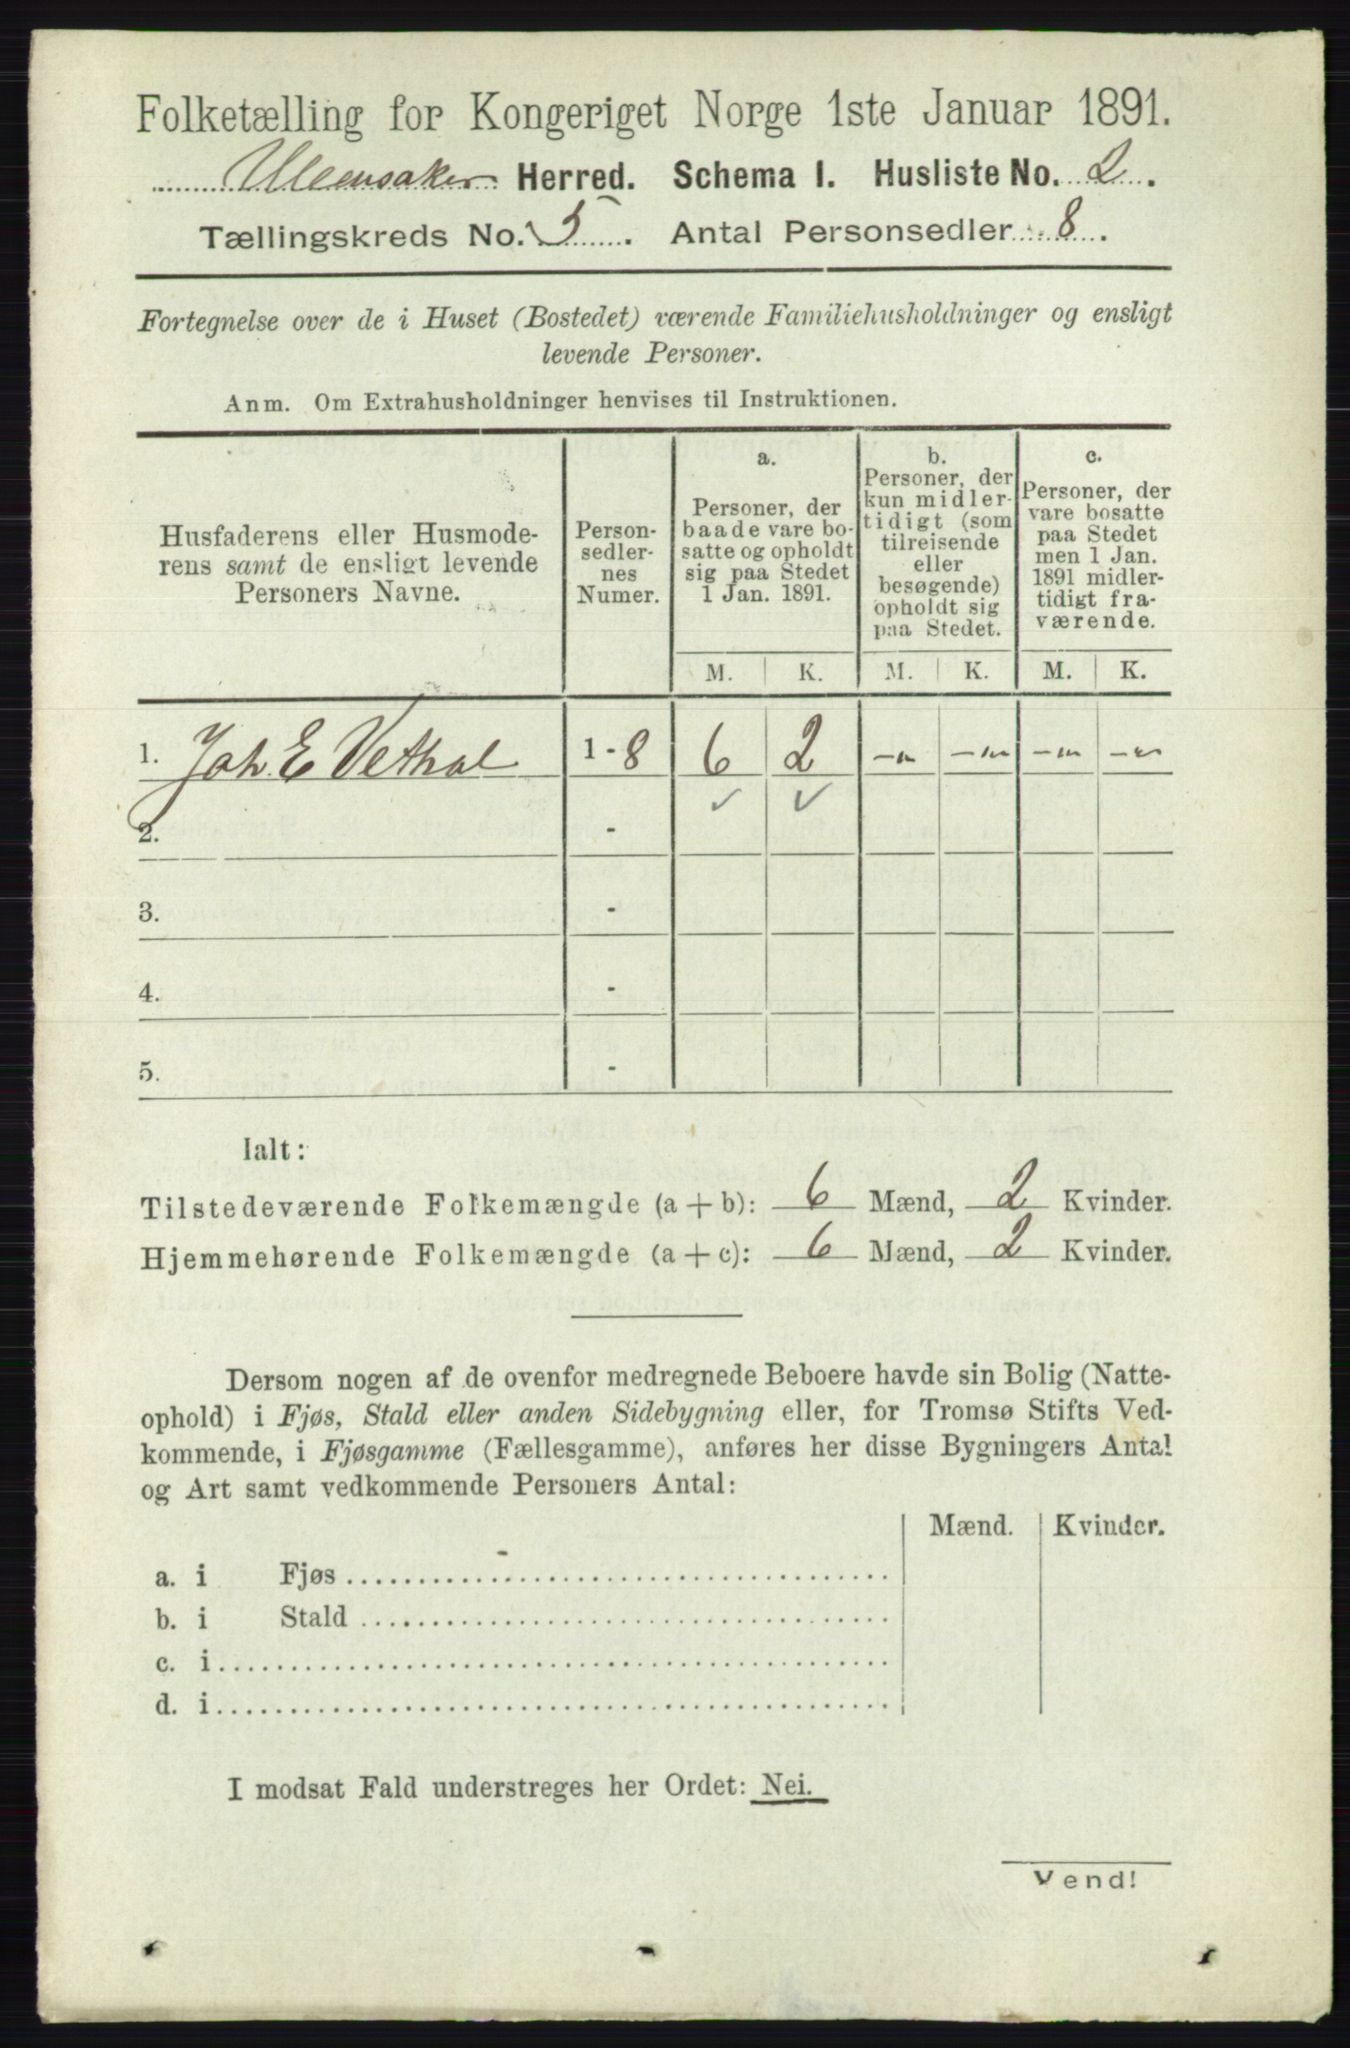 Folketælling for Kongeriget Norge 1ste Januar 1891.
Ullensaker Herred. Schema I. Husliste No. 2.
Tællingskreds No. 5. Antal Personsedler 8.
Fortegnelse over de i Huset (Bostedet) værende Familiehusholdninger og ensligt
levende Personer.
Anm. Om Extrahusholdninger henvises til Instruktionen.
Husfaderens eller Husmode-
rens samt de ensligt levende
Personers Navne.
Person-
sedler-
nes
Numer.
a.
Personer, der
baade vare bo-
satte og opholdt
sig paa Stedet
1 Jan. 1891.
b.
Personer, der
kun midler-
tidigt (som
tilreisende
eller
besøgende)
opholdt sig
paa Stedet.
c.
Personer, der
vare bosatte
paa Stedet
men 1 Jan.
1891 midler-
tidigt fra-
værende.
M. K. M. K. M. K.
1. Joh. E Vethal 1 - 8 6 2 - - - -
✓ ✓
2. -
3. -
4. -
5. -
Ialt:
Tilstedeværende Folkemængde (a + b): 6 Mænd, 2 Kvinder.
Hjemmehørende Folkemængde (a + c): 6 Mænd, 2 Kvinder.
Dersom nogen af de ovenfor medregnede Beboere havde sin Bolig (Natte-
ophold) i Fjøs, Stald eller anden Sidebygning eller, for Tromsø Stifts Ved-
kommende, i Fjøsgamme (Fællesgamme), anføres her disse Bygningers Antal
og Art samt vedkommende Personers Antal:
Mænd. Kvinder.
a. i Fjøs
b. i Stald
c. i
d. i
I modsat Fald understreges her Ordet: Nei.
Vend!